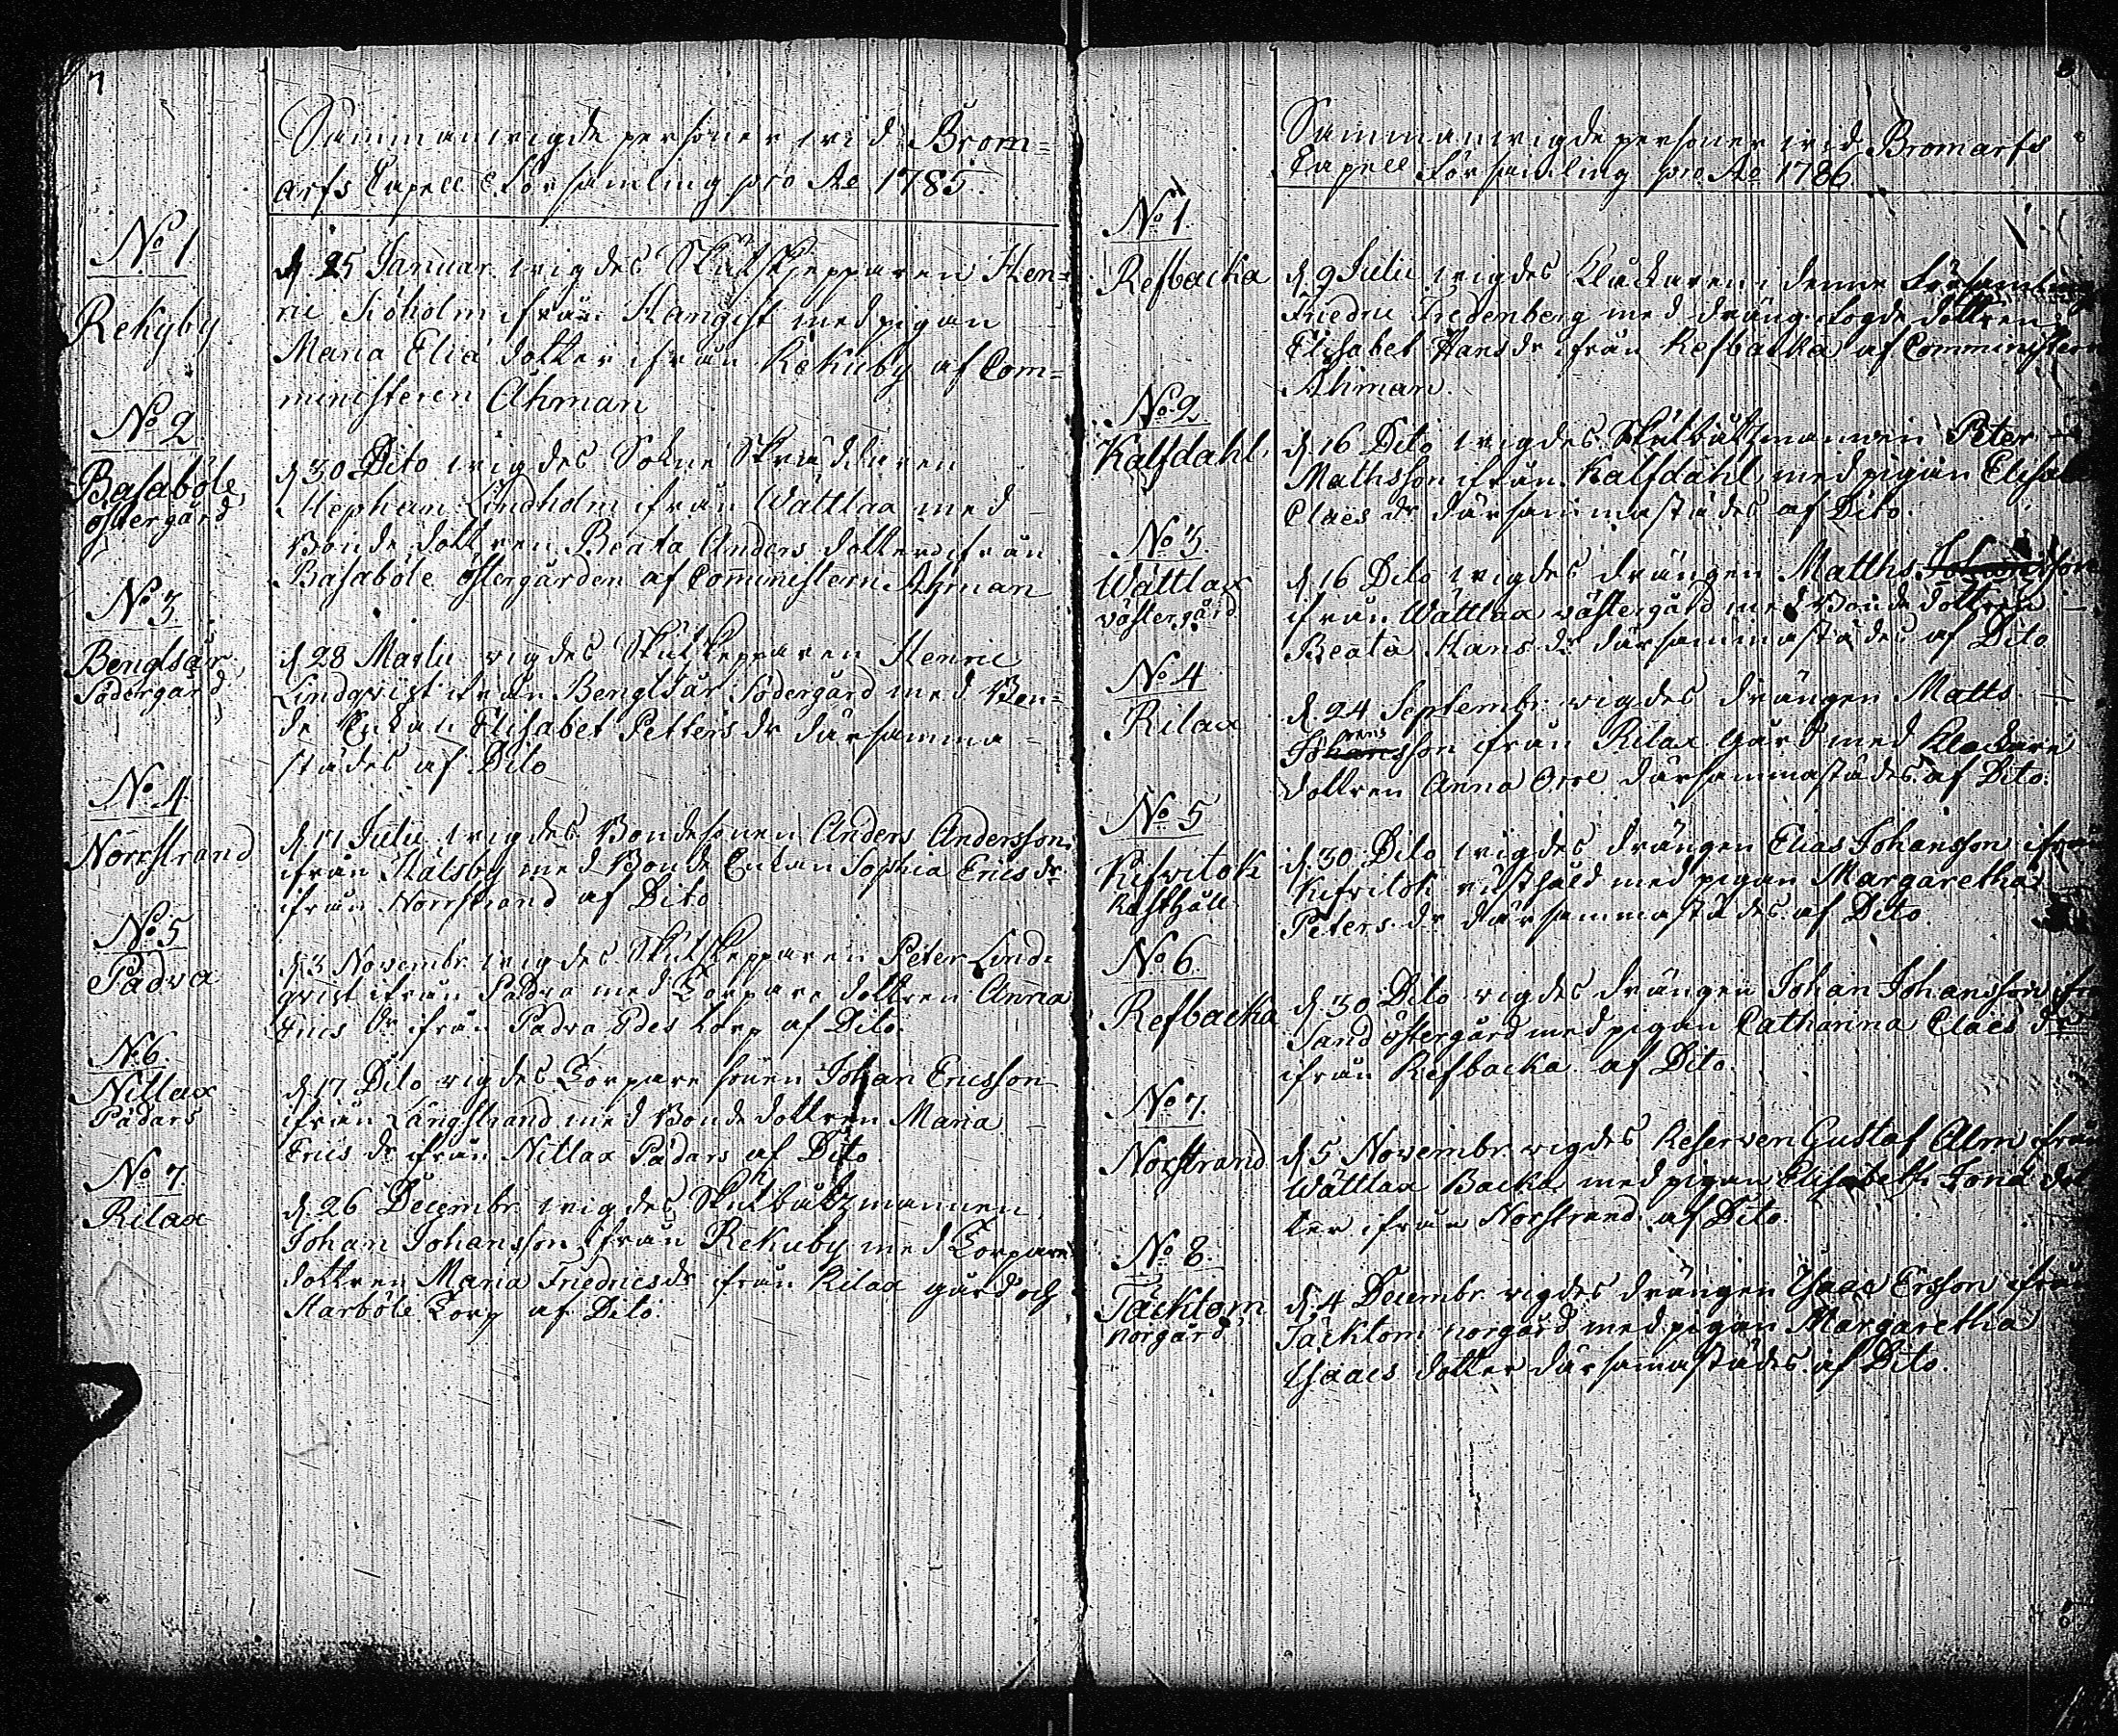 7
Sammanvigde personer vid Brom=
arfs Capell Församling pro Ao 1785.
No 1
Rekuby
d. 25 Januar. wigdes Skutskepparen Hen=
ric Siöholm ifrån Hangist med pigan
Maria Eliæ dotter ifrån Rekuby af Com=
ministeren Åhman
No 2
Basaböle
östergård
d. 30 Dito wigdes Sokne Skräddaren
Stephan Lindholm ifrån Wättlax med
Bonde dottren Beata Anders dotter ifrån
Basaböle östergården af Comministern Åhman
No 3
Bengtsår
Södergård
d. 28 Martii wigdes Skutskepparen Henric
Lindqvist ifrån Bengtsår Södergård med Bon=
de Enkan Elisabet Petters dr därsamma
städes af Dito
No 4
Norrstrand
d. 17 Julii wigdes Bondesonen Anders Andersson
ifrån Kalsby med Bonde Enkan Sophia Erics dr
ifrån Norrstrand af Dito
No 5
Padva
d. 3 Novembr. wigdes Skutskepparen Peter Lind=
qvist ifrån Padva med Torpare dottren Anna
Erics dr ifrån Padva Edes torp af Dito.
No 6
Nitlax
Pådars
d. 17 Dito wigdes Torpare sonen Johan Ericsson
ifrån Långstrand med Bonde dottren Maria
Erics dr ifrån Nitlax Pådars af Dito
No 7
Rilax
d. 26 Decembr. wigdes Skutbåtzmannen
Johan Johansson ifrån Rekuby med Torpare
dottren Maria Friedrics dr ifrån Rilax gård och
Starböle Torp af Dito.
8
Sammanvigde personer vid Bromarfs
Capell Församling pro Ao 1786
No 1.
Refbacka
d. 9 Julii wigdes Klockaren i denne Församling
Friedric Fredenberg med dräng fogde dottren
Elisabet Hans dr ifrån Refbacka af Comministern
Åhman.
No 2
Kalfdahl
d. 16 Dito wigdes Skutbåtzmannen Peter
Mathsson ifrån Kalfdahl med pigan Elisabet
Claes dr därsammastädes af Dito.
No 3.
Wättlax
västergård
d. 16 Dito wigdes drängen Matths Johansson
ifrån Wättlax västergård med Bonde dottren
Beata Hans dr därsammastädes af Dito
No 4
Rilax
d. 24 Septembr. wigdes drängen Matts
Johansson ifrån Rilax gård med Klockare
dottren Anna Orre därsammastädes af Dito.
No 5
Kifvitok
Rusthåll
d. 30 Dito wigdes drängen Elias Johansson ifrån
Kifvitok rusthåld med pigan Margaretha
Peters dr därsammastädes af Dito
No 6
Refbacka
d. 30 Dito wigdes drängen Johan Johansson ifrån
Sand östergård med pigan Catharina Claes dr
ifrån Refbacka af Dito.
No 7.
Norstrand
d. 5 Novembr. wigdes Reserven Gustaf Alm ifrån
Wättlax Backa med pigan Elisabeth Jona dot
ter ifrån Norstrand af Dito.
No 8.
Täcktom
norgård
d. 4 Decembr. wigdes drängen Isaac Ersson ifrån
Täcktom norgård med pigan Margaretha
Isaacs dotter därsammastädes af Dito.